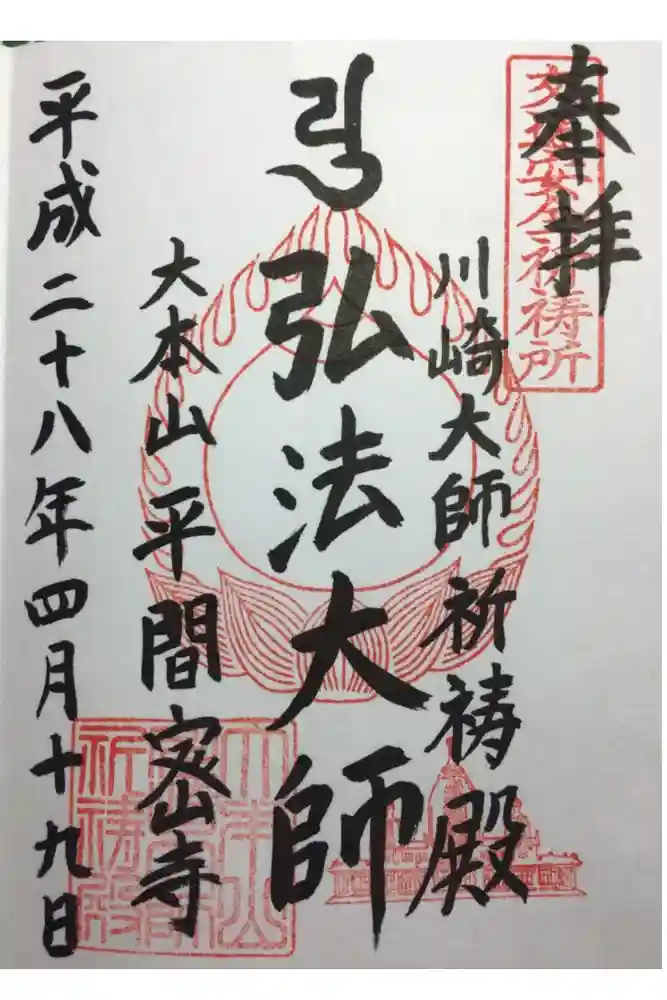 奉拝
交通安全祈祷所
川崎大師 祈祷殿
弘法大師
大本山 平間密寺
平成二十八年四月十九日
祈祷殿